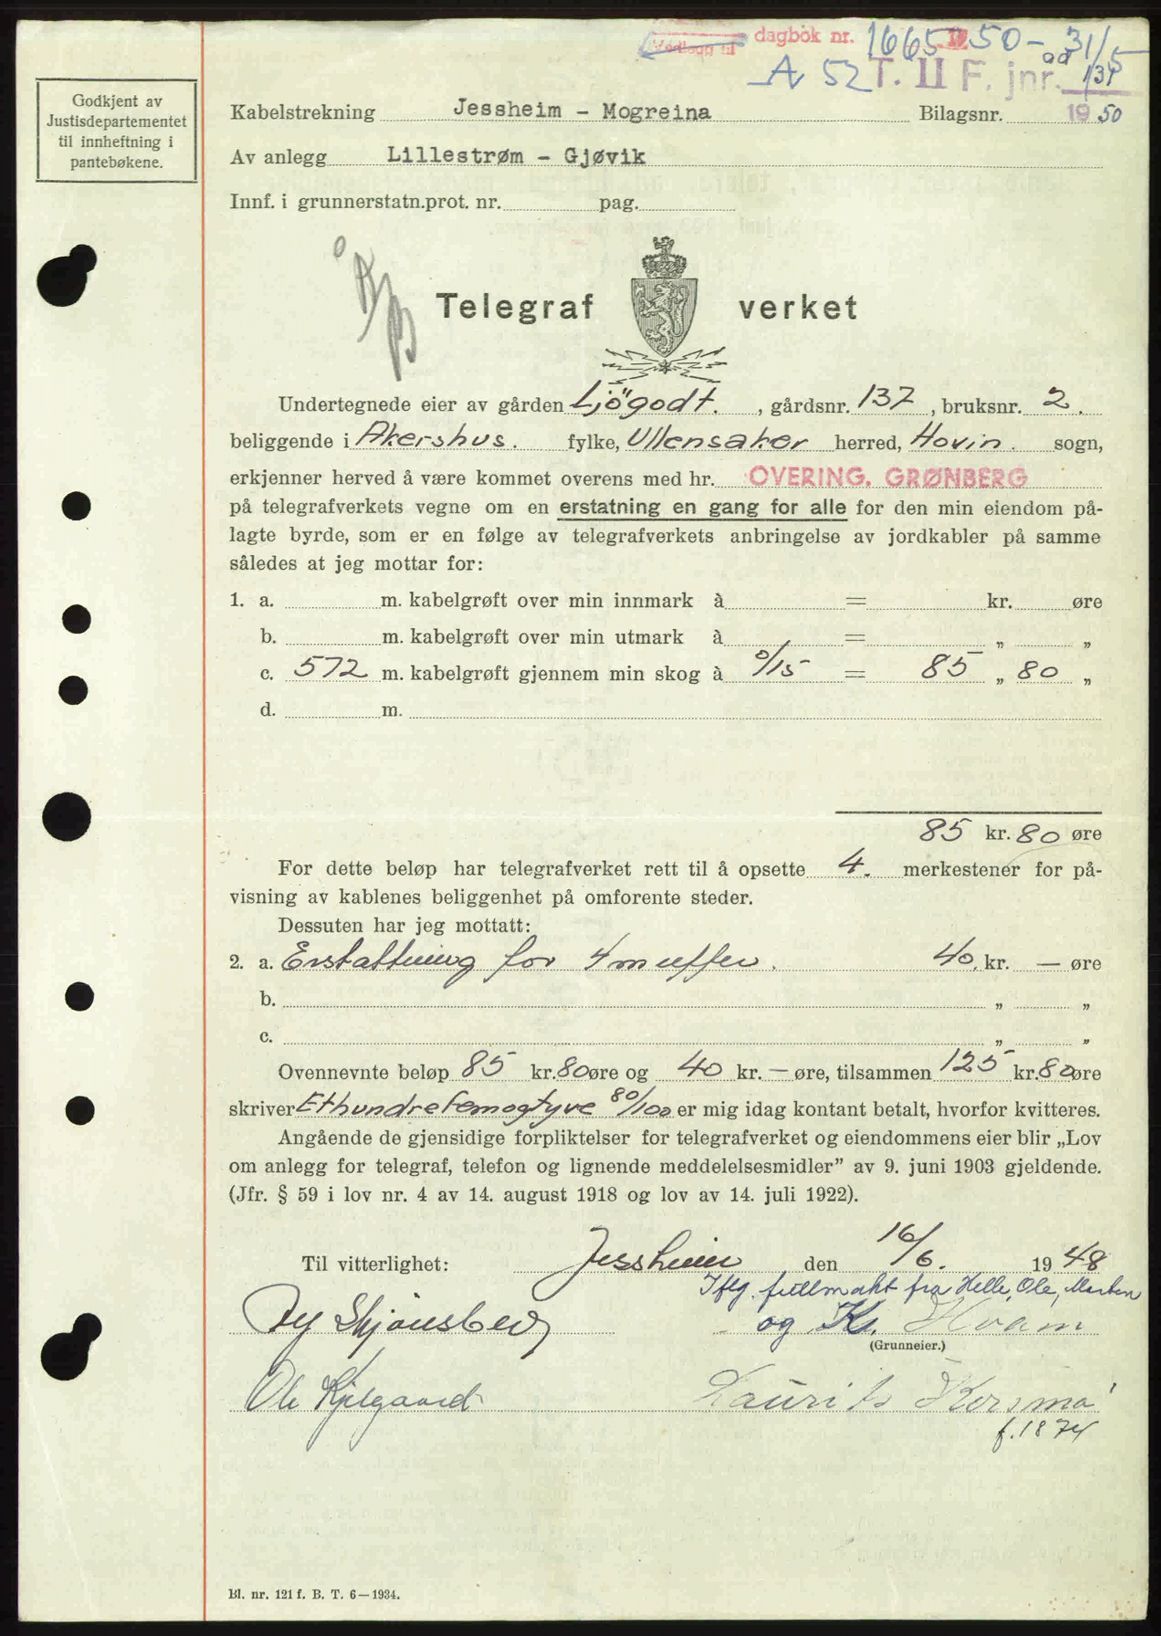 dagbok nr. 1665 50 - 31/5
Vedlegg til
A 52 T. II F. jnr. ad 131
Godkjent av
Justisdepartementet
til innheftning i
pantebøkene.
Kabelstrekning Jessheim - Mogreina Bilagsnr. 1950
Av anlegg Lillestrøm - Gjøvik
Innf. i grunnerstatn.prot. nr. pag.
Telegraf verket
Undertegnede eier av gården Ljögodt. , gårdsnr. 137 , bruksnr. 2.
beliggende i Akershus. fylke, Ullensaker herred, Hovin. sogn,
erkjenner herved å være kommet overens med hr. OVERING. GRØNBERG
på telegrafverkets vegne om en erstatning en gang for alle for den min eiendom på-
lagte byrde, som er en følge av telegrafverkets anbringelse av jordkabler på samme
således at jeg mottar for:
1. a. m. kabelgrøft over min innmark à = kr. øre
b. m. kabelgrøft over min utmark à = „ „
c. 572 m. kabelgrøft gjennem min skog à 0/15 = 85 „ 80 „
d. m.
85 kr. 80 øre
For dette beløp har telegrafverket rett til å opsette 4. merkestener for på-
visning av kablenes beliggenhet på omforente steder.
Dessuten har jeg mottatt:
2. a. Erstattning for 4 muffer. 40. kr. — øre
b. „ „
c. „ „
Ovennevnte beløp 85 kr. 80 øre og 40 kr. — øre, tilsammen 125 kr. 80 øre
skriver Ethundrefemogtyve 80/100 er mig idag kontant betalt, hvorfor kvitteres.
Angående de gjensidige forpliktelser for telegrafverket og eiendommens eier blir „Lov
om anlegg for telegraf, telefon og lignende meddelelsesmidler” av 9. juni 1903 gjeldende.
(Jfr. § 59 i lov nr. 4 av 14. august 1918 og lov av 14. juli 1922).
Til vitterlighet: Jessheim den 16/6. 1948
Iflg. fullmakt fra Helle, Ole, Marten
og Kr. Hvam
(Grunneier.)
Ole Kjelgaard
Laurits
f. 1874
Bl. nr. 121 f. B. T. 6—1934.